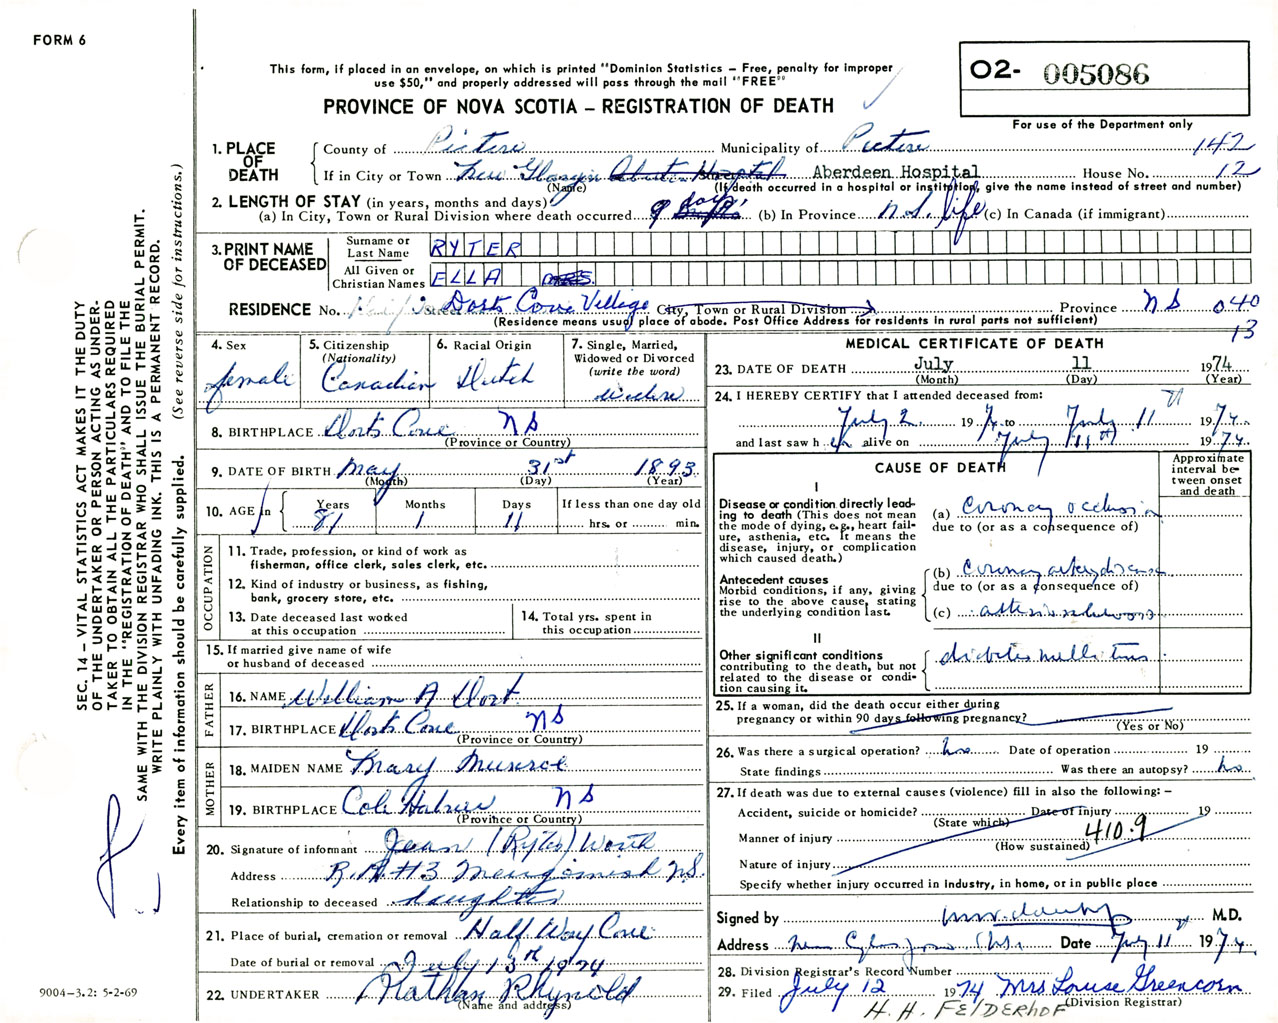 FORM 6
This form, if placed in an envelope, on which is printed "Dominion Statistics – Free, penalty for improper
use $50," and properly addressed will pass through the mail "FREE"
PROVINCE OF NOVA SCOTIA – REGISTRATION OF DEATH
O2- 005086
For use of the Department only
1. PLACE OF DEATH
County of Pictou Municipality of Pictou 142
If in City or Town New Glasgow Aberdeen Hospital House No. 12
(Name) (If death occurred in a hospital or institution, give the name instead of street and number)
2. LENGTH OF STAY (in years, months and days)
(a) In City, Town or Rural Division where death occurred 9 days (b) In Province N.S. life (c) In Canada (if immigrant)
3. PRINT NAME OF DECEASED
Surname or Last Name RYTER
All Given or Christian Names ELLA
RESIDENCE No. Dorts Cove Village City, Town or Rural Division Province NS 040
(Residence means usual place of abode. Post Office Address for residents in rural parts not sufficient) 13
4. Sex female
5. Citizenship (Nationality) Canadian
6. Racial Origin Dutch
7. Single, Married, Widowed or Divorced (write the word) widow
8. BIRTHPLACE Dorts Cove NS
(Province or Country)
9. DATE OF BIRTH May 31st 1893
(Month) (Day) (Year)
10. AGE in Years 81 Months 1 Days 11 If less than one day old hrs. or min.
OCCUPATION
11. Trade, profession, or kind of work as
fisherman, office clerk, sales clerk, etc.
12. Kind of industry or business, as fishing,
bank, grocery store, etc.
13. Date deceased last worked
at this occupation
14. Total yrs. spent in
this occupation
15. If married give name of wife
or husband of deceased
FATHER
16. NAME William A Dort
17. BIRTHPLACE Dorts Cove NS
(Province or Country)
MOTHER
18. MAIDEN NAME Mary Munroe
19. BIRTHPLACE Cole Harbour NS
(Province or Country)
20. Signature of informant Jean (Ryter) Worth
Address R.R #3 Merigomish NS.
Relationship to deceased daughter
21. Place of burial, cremation or removal Half Way Cove
Date of burial or removal July 13th 1974
22. UNDERTAKER Nathan Rhynold
(Name and address)
MEDICAL CERTIFICATE OF DEATH
23. DATE OF DEATH July 11 1974
(Month) (Day) (Year)
24. I HEREBY CERTIFY that I attended deceased from:
July 2 1974 to July 11th 1974
and last saw her alive on July 11th 1974
CAUSE OF DEATH
Approximate interval between onset and death
I
Disease or condition directly leading to death (This does not mean the mode of dying, e.g., heart failure, asthenia, etc. It means the disease, injury, or complication which caused death.)
(a) Coronary occlusion
due to (or as a consequence of)
Antecedent causes
Morbid conditions, if any, giving rise to the above cause, stating the underlying condition last.
(b) Coronary artery disease
due to (or as a consequence of)
(c) arteriosclerosis
II
Other significant conditions
contributing to the death, but not related to the disease or condition causing it.
diabetes mellitus
25. If a woman, did the death occur either during
pregnancy or within 90 days following pregnancy?
(Yes or No)
26. Was there a surgical operation? no Date of operation 19
State findings Was there an autopsy? no
27. If death was due to external causes (violence) fill in also the following: –
Accident, suicide or homicide? Date of injury 19
(State which)
Manner of injury 410.9
(How sustained)
Nature of injury
Specify whether injury occurred in industry, in home, or in public place
Signed by M.D.
Address New Glasgow N.S. Date July 11th 1974
28. Division Registrar's Record Number
29. Filed July 12 1974 Mrs Louise Greencorn
(Division Registrar)
H. H. FELDERHOF
SEC. 14 – VITAL STATISTICS ACT MAKES IT THE DUTY
OF THE UNDERTAKER OR PERSON ACTING AS UNDER-
TAKER TO OBTAIN ALL THE PARTICULARS REQUIRED
IN THE "REGISTRATION OF DEATH" AND TO FILE THE
SAME WITH THE DIVISION REGISTRAR WHO SHALL ISSUE THE BURIAL PERMIT.
WRITE PLAINLY WITH UNFADING INK. THIS IS A PERMANENT RECORD.
Every item of information should be carefully supplied. (See reverse side for instructions.)
9004–3.2: 5-2-69